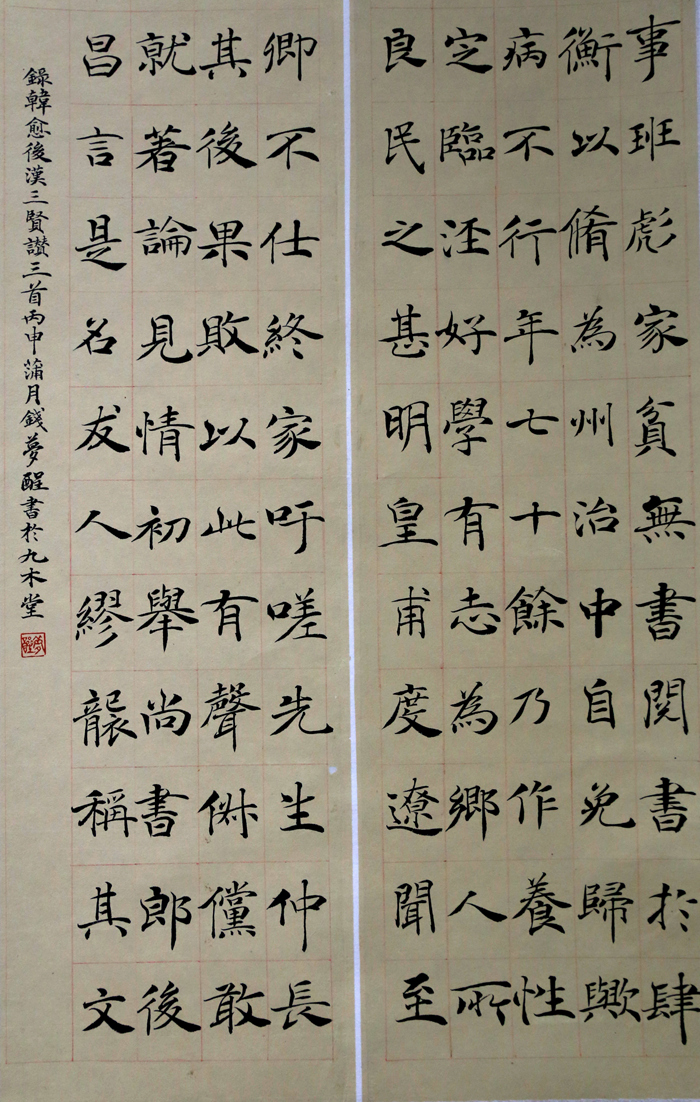 事班彪家貧無書閱書於肆
衡以脩為州治中自免歸歟
病不行年七十餘乃作養性
定臨涇好學有志為鄉人所
良民之甚明皇甫度遼聞至
卿不仕終家吁嗟先生仲長
其後果敗以此有聲俶儻敢
就著論見情初舉尚書郎後
昌言是名友人繆襲稱其文
錄韓愈後漢三賢讃三首丙申蒲月錢夢醒書於九木堂